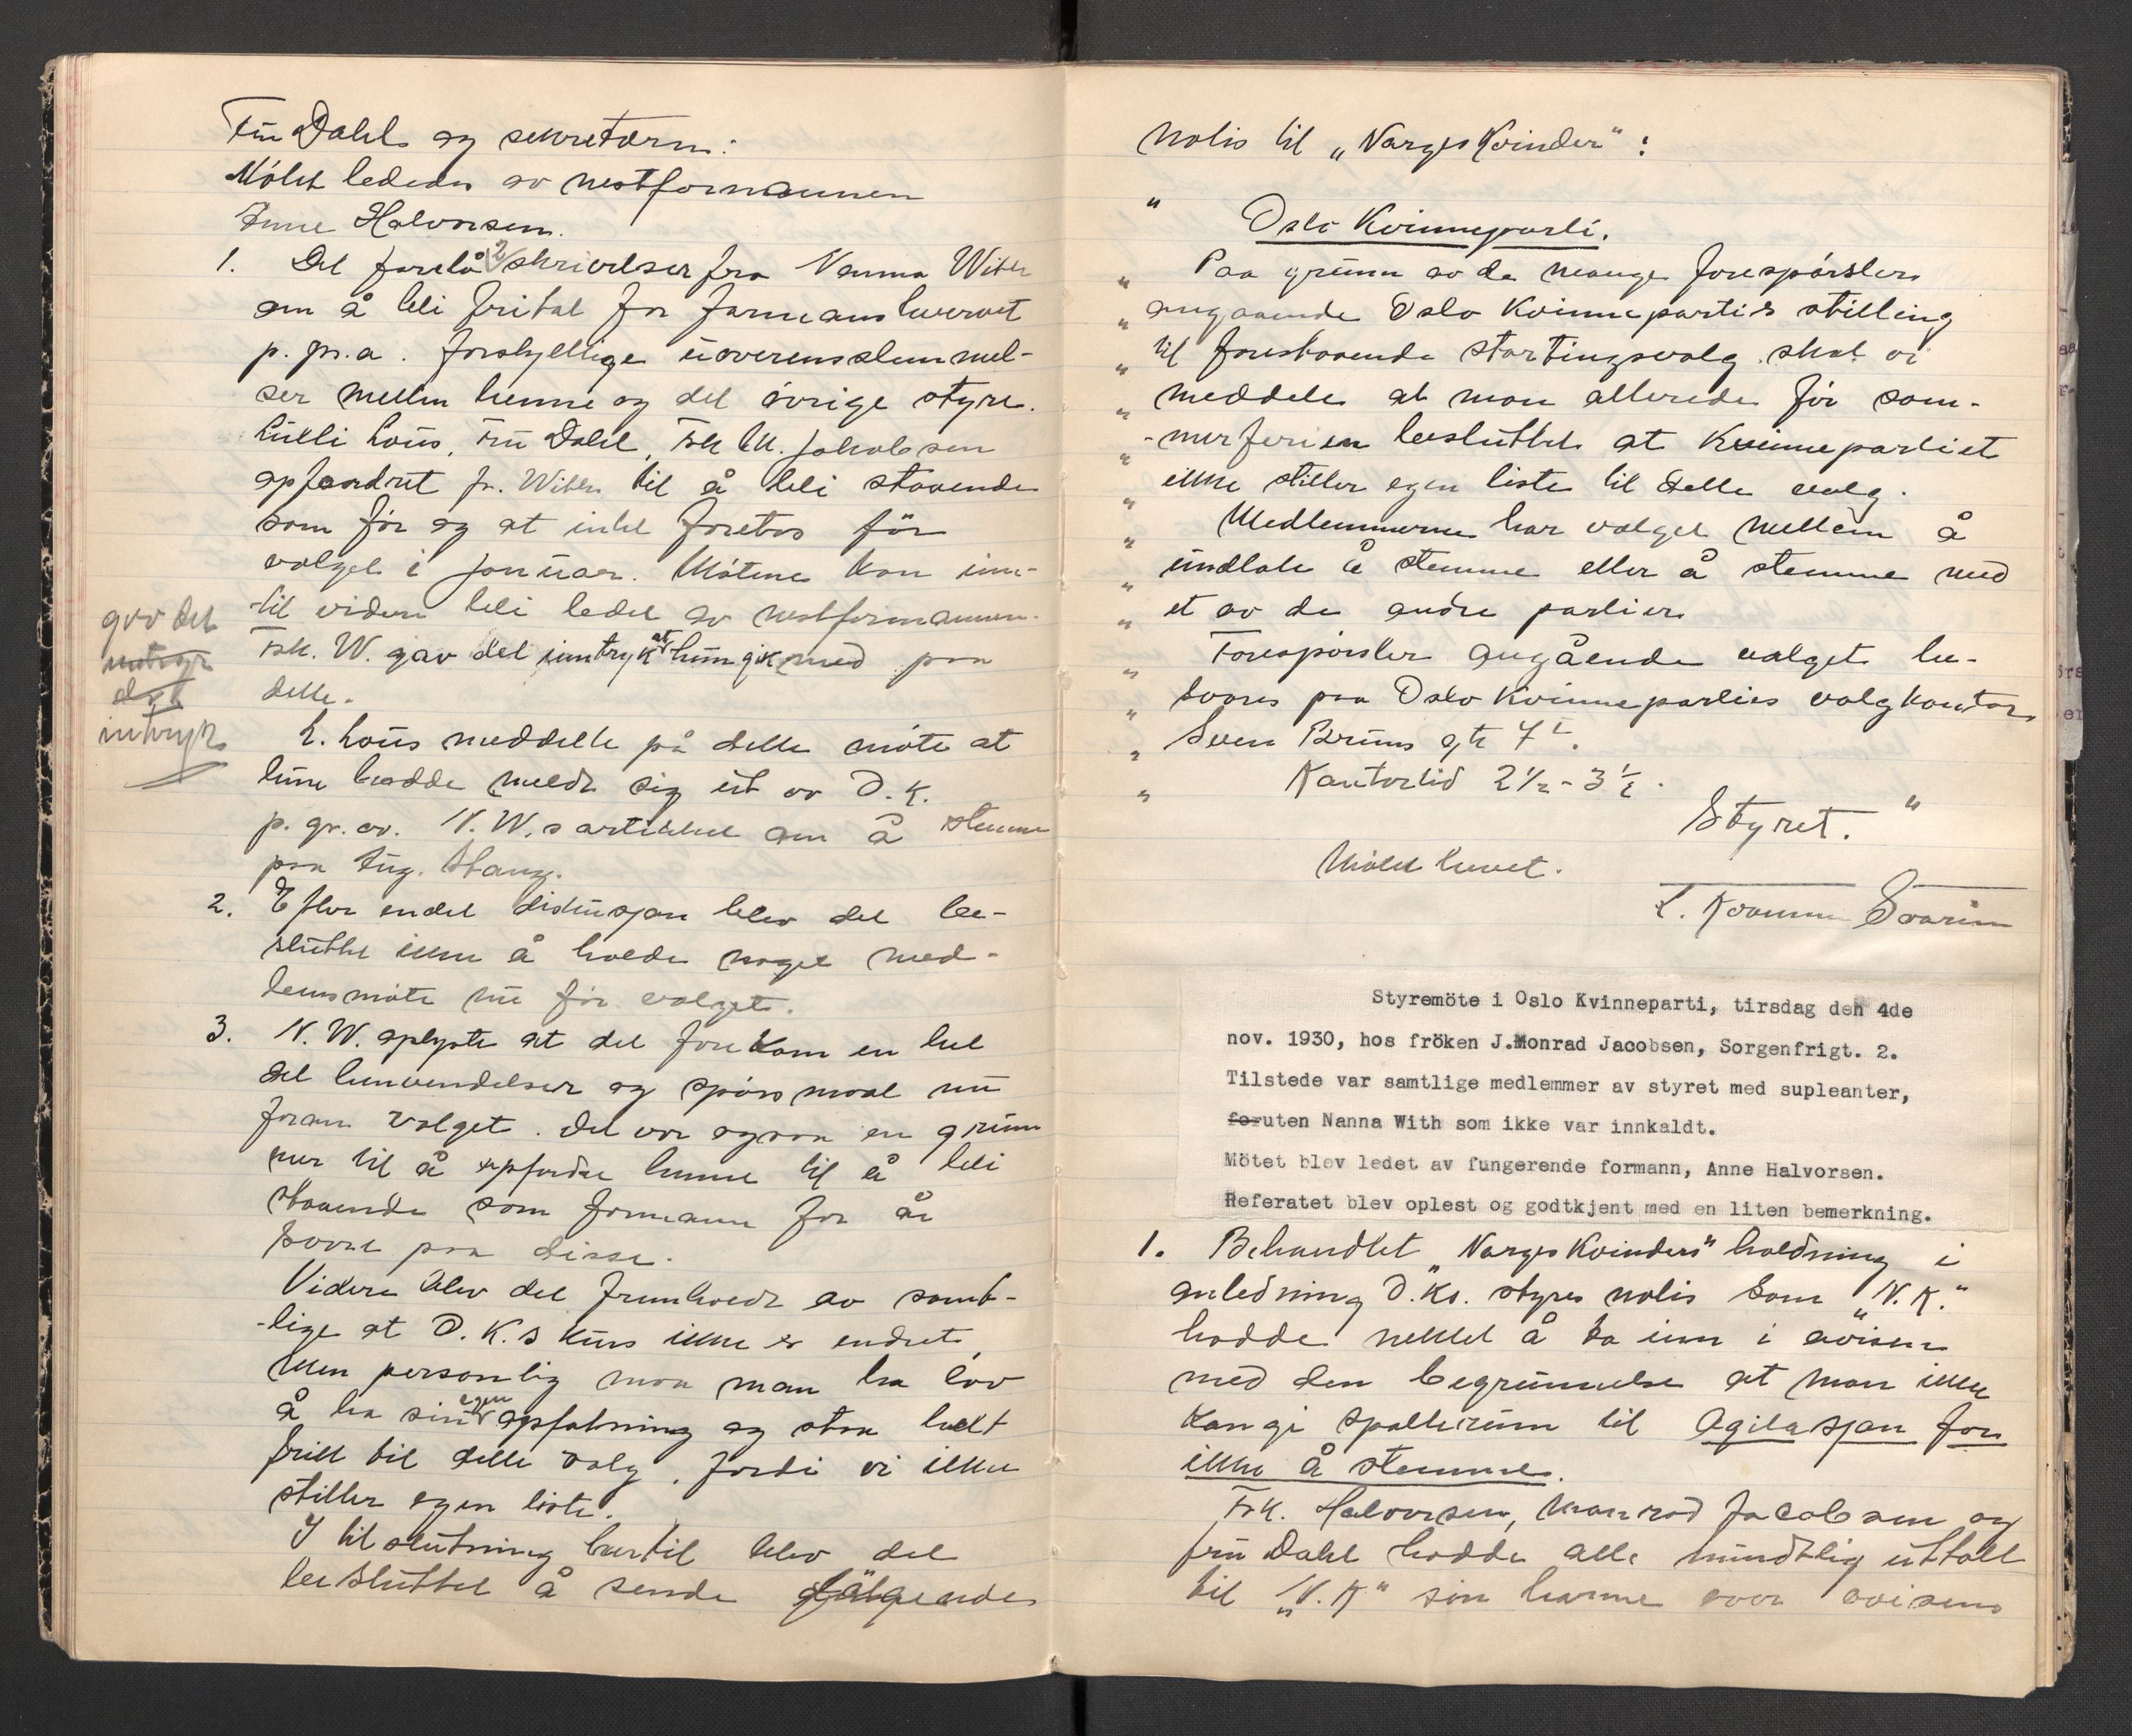 Fru Dahl og sekretæren.
Mötet lededes av nestformannen
Anne Halvorsen.
1. Det forelå 2 skrivelser fra Nanna With
om å bli fritat for formanshvervet
p. gr. a. forskjellige uoverensstemmel-
ser mellem henne og det övrige styre.
Lulli Lous, Fru Dahl, Frk M. Jakobsen
opfordret fr. With til å bli staaende
som för og at intet foretas för
valget i januar. Mötene kan inn-
til videre bli ledet av nestformannen.
Frk. W. gav det inntryk at hun gik med paa
dette.
gav det
inntryk
det
intryk
L. Lous meddelte på dette möte at
hun hadde meldt sig ut av O.K.
p. gr. av. N.W.s artikkel om å stemme
paa Fug. Stang.
2. Efter endel diskusjon blev det be-
sluttet ikke å holde noget med-
lemsmöte nu för valget.
3. N.W. oplyste at det forekom en hel
del henvendelser og spörsmaal nu
foran valget. Det var ogsaa en grun
mer til å opfordre henne til å bli
staaende som formann for å
svare paa disse.
Videre blev det fremhævet av samt-
lige at O.K.s kurs ikke er endret,
men personlig maa man ha lov
å ha sin egen opfatning og staa helt
fritt til dette valg, fordi vi ikke
stiller egen liste.
I tilslutning hertil blev det
besluttet å sende fölgende
notis til „Norges Kvinder":
" Oslo Kvinneparti.
" Paa grunn av de mange forespörsler
" angaaende Oslo Kvinnepartis stilling
" til forestaaende stortingsvalg skal vi
" meddele at man allerede för som-
" -merferien besluttet at Kvinnepartiet
" ikke stiller egen liste til dette valg.
" Medlemmerne har valget mellem å
" undlate å stemme eller å stemme med
" et av de andre partier.
" Forespörsler angående valget be-
" svares paa Oslo Kvinnepartis valgkontor,
" Sven Bruns gt 7 I.
" Kontortid 2½ - 3½.
Styret. "
Mötet hevet.
L. Kvamme Svarin
Styremöte i Oslo Kvinneparti, tirsdag den 4de
nov. 1930, hos fröken J.Monrad Jacobsen, Sorgenfrigt. 2.
Tilstede var samtlige medlemmer av styret med supleanter,
foruten Nanna With som ikke var innkaldt.
Mötet blev ledet av fungerende formann, Anne Halvorsen.
Referatet blev oplest og godtkjent med en liten bemerkning.
1. Behandlet „Norges Kvinders" holdning i
anledning O.Ks. styres notis som „N.K."
hadde nektet å ta inn i avisen
med den begrunnelse at man ikke
kan gi spalterum til agitasjon for
ikke å stemme.
Frk. Halvorsen, Monrad Jacobsen og
fru Dahl hadde alle mundtlig uttalt
til „N.K" sin harme over avisens